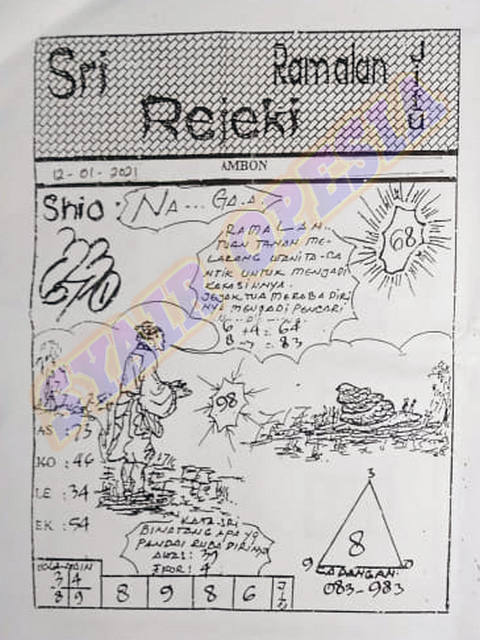 Sri
Rejeki
Ramalan
Jitu
AMBON
12-01-2021
Shio: NA... GA.A.
RAMALAN..
TUAN TANAH ME-
LARANG WANITA CA
NTIK UNTUK MENJADI
KEKASIHNYA.
JEJAK TUA MERABA DIRI
NYA MENJADI PENCARI
6 +4 = 64
8 -7 = 83
68
98
AS : 73
KO : 46
LE : 34
EK : 54
KATA SRI
BINATANG APA YG
PANDAI RUBA DIRINYA
AWAL: 39
EKOR: 4
3
8
9 0
CADANGAN
083-983
3 4
8 9
8 9 8 6
JITU
KYAIPAKOPESIA